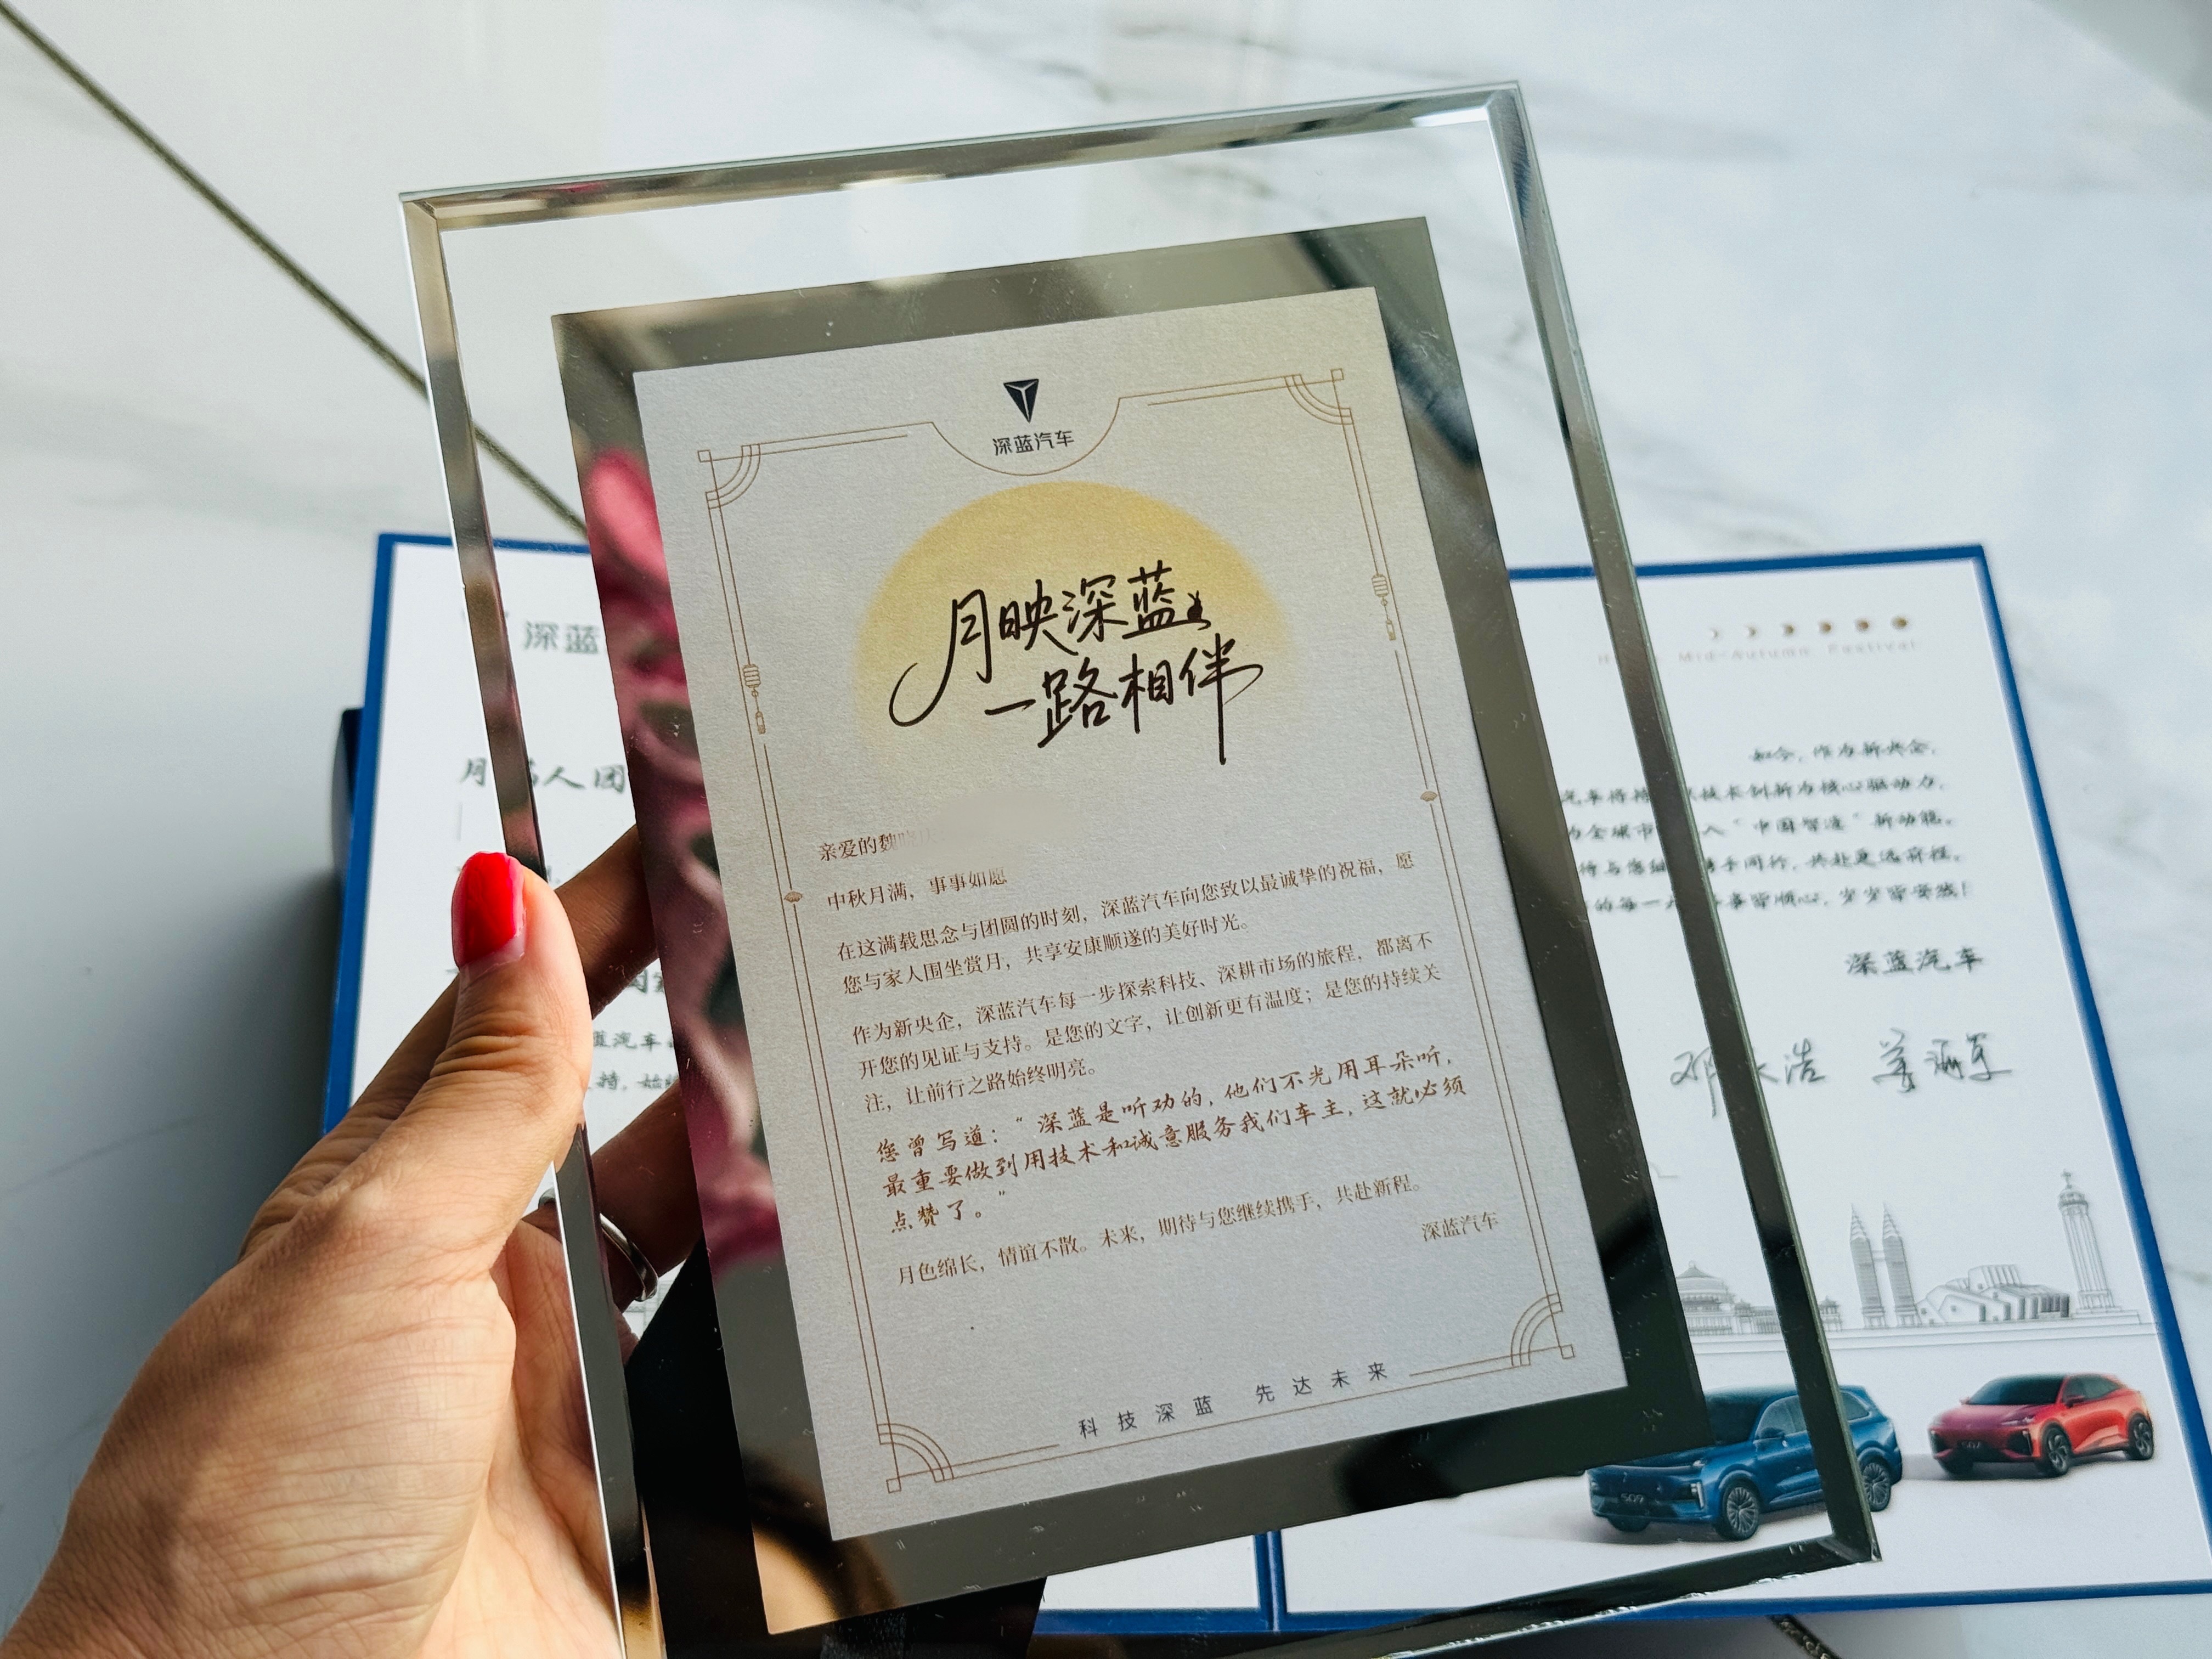 深蓝汽车
月映深蓝
一路相伴
亲爱的魏
中秋月满，事事如愿
在这满载思念与团圆的时刻，深蓝汽车向您致以最诚挚的祝福，愿
您与家人围坐赏月，共享安康顺遂的美好时光。
作为新央企，深蓝汽车每一步探索科技、深耕市场的旅程，都离不
开您的见证与支持。是您的文字，让创新更有温度；是您的持续关
注，让前行之路始终明亮。
您曾写道：“深蓝是听劝的，他们不光用耳朵听，
最重要做到用技术和诚意服务我们车主，这就必须
点赞了。”
月色绵长，情谊不散。未来，期待与您继续携手，共赴新程。
深蓝汽车
科技深蓝 先达未来
深蓝
月
人团
蓝汽车
持，始
Mid-Autumn Festival
如今，作为新央企，
汽车将持 技术创新为核心驱动力，
为全球市 入“中国智造”新动能。
待与您继 携手同行，共赴更远前程。
的每一 事皆顺心，岁岁皆安然！
深蓝汽车
S09
S07